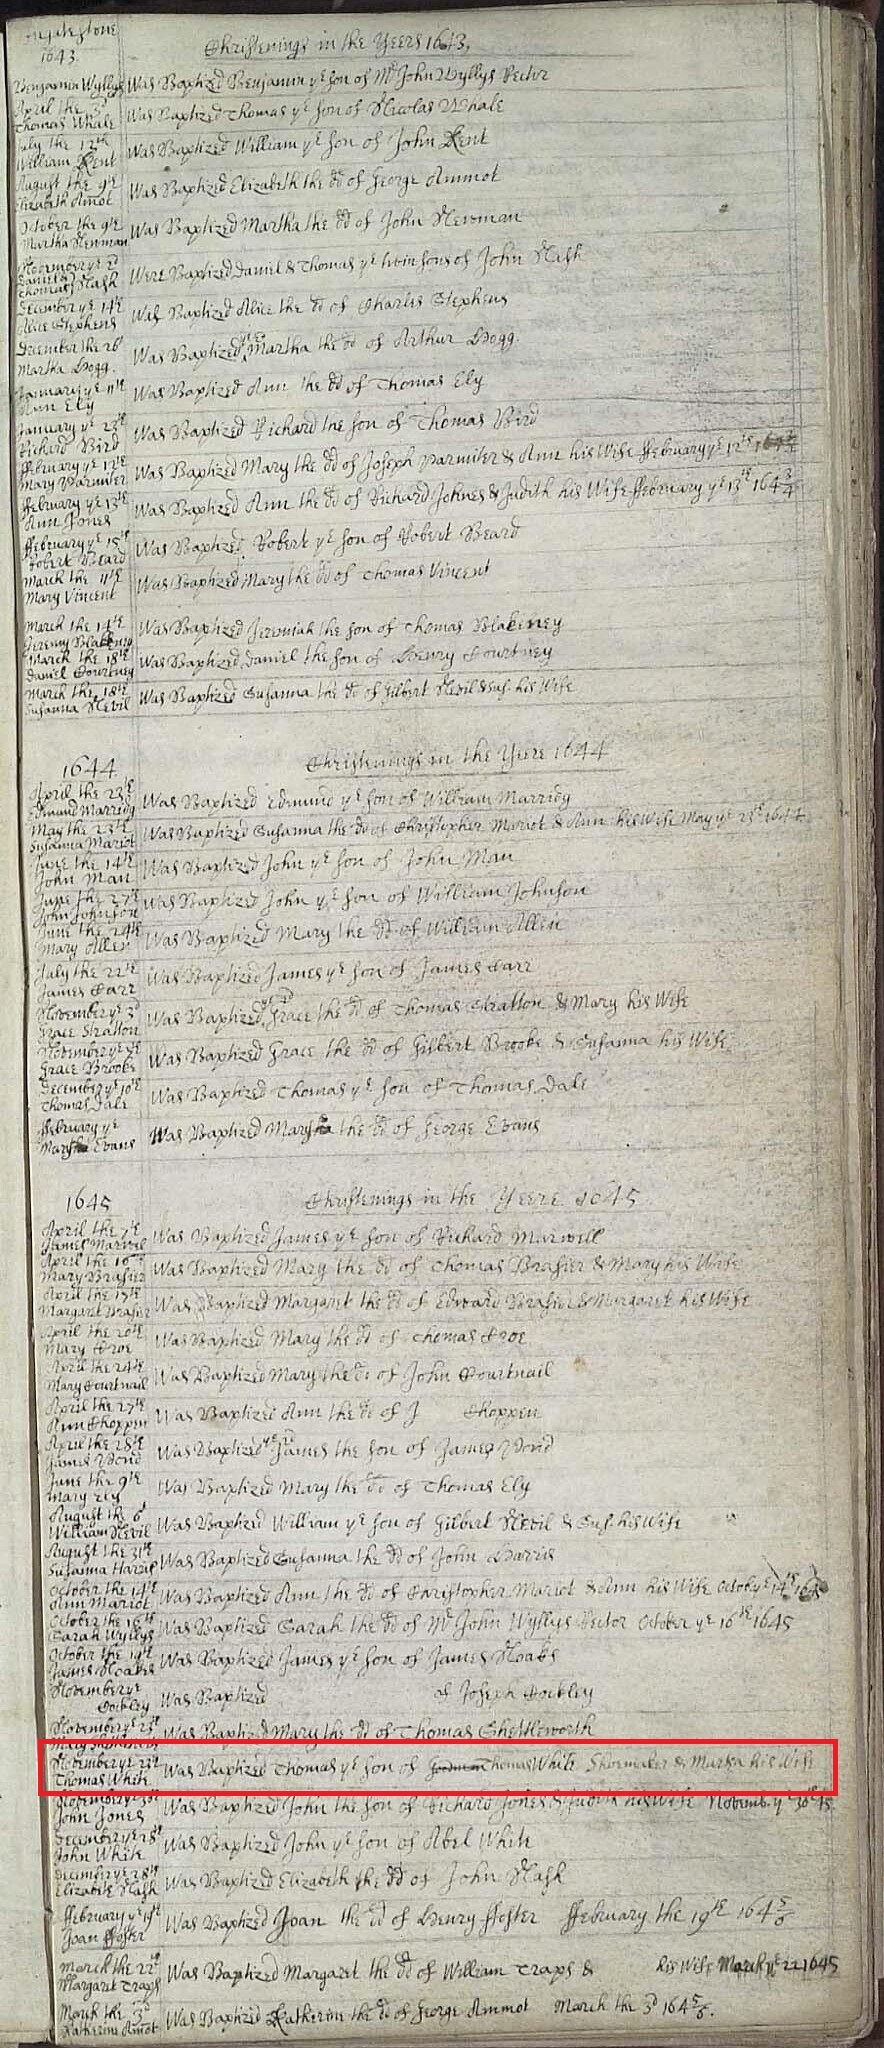 Ingatestone
1643
Christenings in the Yeers 1643,
Benjamin Wyllys Was Baptized Benjamin ye son of Mr John Wyllys Rector
April the 3d
Thomas Whale Was Baptized Thomas ye son of Nicolas Whale
July the 12th
William Kent Was Baptized William ye son of John Kent
August the 9th
Elizabeth Amot Was Baptized Elizabeth the dd of George Ammot
October the 9th
Martha Newman Was Baptized Martha the dd of John Newman
November ye
Daniel &
Thomas Nash Were Baptized Daniel & Thomas ye twin sons of John Nash
December ye 14th
Alice Stephens Was Baptized Alice the dd of Charles Stephens
December the 26
Martha Hogg. Was Baptized Martha the dd of Arthur Hogg.
January ye 11th
Ann Ely Was Baptized Ann the dd of Thomas Ely
January ye 23th
Richard Bird Was Baptized Richard the son of Thomas Bird
ffebruary ye 12th
Mary Parmiter Was Baptized Mary the dd of Joseph Parmiter & Ann his Wife ffebruary ye 12th
ffebruary ye 13th
Ann Jones Was Baptized Ann the dd of Richard Johnes & Judith his Wife ffebruary ye 13th 164 3/4
ffebruary ye 15th
Robert Beard Was Baptized Robert ye son of Robert Beard
March the 11th
Mary Vincent Was Baptized Mary the dd of Thomas Vincent
March the 14th
Jeremy Blakeney Was Baptized Jeremiah the son of Thomas Blakeney
March the 18th
Daniel Courtney Was Baptized Daniel the son of Henry Courtney
March the 18th
Susanna Nevil Was Baptized Susanna the dd of Gilbert Nevil & Sus. his Wife
1644
Christenings in the Yeere 1644
April the 23th
Edmund Marridg Was Baptized Edmund ye son of William Marridg
May the 23th
Susanna Mariot Was Baptized Susanna the dd of Christopher Mariot & Ann his Wife May ye 23th 1644
June the 14th
John Man Was Baptized John ye son of John Man
June the 27th
John Johnson Was Baptized John ye son of William Johnson
June the 24th
Mary Allen Was Baptized Mary the dd of William Allen
July the 22th
James Carr Was Baptized James ye son of James Carr
November ye 3d
Grace Stratton Was Baptized Grace the dd of Thomas Stratton & Mary his Wife
November ye
Grace Brooks Was Baptized Grace the dd of Gilbert Brooks & Susanna his Wife
December ye 10th
Thomas Dale Was Baptized Thomas ye son of Thomas Dale
ffebruary ye
Evans Was Baptized the dd of George Evans
1645
Christenings in the Yeere 1645
April the 7th
James Marwel Was Baptized James ye son of Richard Marwell
April the 16th
Mary Brasier Was Baptized Mary the dd of Thomas Brasier & Mary his Wife
April the 17th
Margaret Brasier Was Baptized Margaret the dd of Edward Brasier & Margaret his Wife
April the 20th
Mary Croe Was Baptized Mary the dd of Thomas Croe
April the 24th
Mary Courtnail Was Baptized Mary the dd of John Courtnail
April the 27th
Ann Choppen Was Baptized Ann the dd of J Choppen
April the 28th
James Pond Was Baptized James the son of James Pond
June the 9th
Mary Ely Was Baptized Mary the dd of Thomas Ely
August the 6
William Nevil Was Baptized William ye son of Gilbert Nevil & Sus. his Wife
August the 31th
Susanna Harris Was Baptized Susanna the dd of John Harris
October the 14th
Ann Mariot Was Baptized Ann the dd of Christopher Mariot & Ann his Wife Octob ye 14th
October the 16th
Sarah Wyllys Was Baptized Sarah the dd of Mr John Wyllys Rector October ye 16th 1645
October the 19th
James Noakes Was Baptized James ye son of James Noaks
November ye
Cockley Was Baptized of Joseph Cockley
November ye 23th
Mary Was Baptized Mary the dd of Thomas Shettleworth
November ye 23th
Thomas White Was Baptized Thomas ye son of Thomas White Shoemaker & Martha his Wife
November ye 30th
John Jones Was Baptized John the son of Richard Jones & Judith his Wife Novemb. ye 30th 45
December ye 28th
John White Was Baptized John ye son of Abel White
December ye 28th
Elizabeth Nash Was Baptized Elizabeth the dd of John Nash
ffebruary ye 19th
Joan ffoster Was Baptized Joan the dd of Henry ffoster ffebruary the 19th 164 5/6
March the 22th
Margaret Traps Was Baptized Margaret the dd of William Traps & his Wife March ye 22 1645
March the 3d
Katherine Amot Was Baptized Katherine the dd of George Ammot March the 3d 164 5/6.